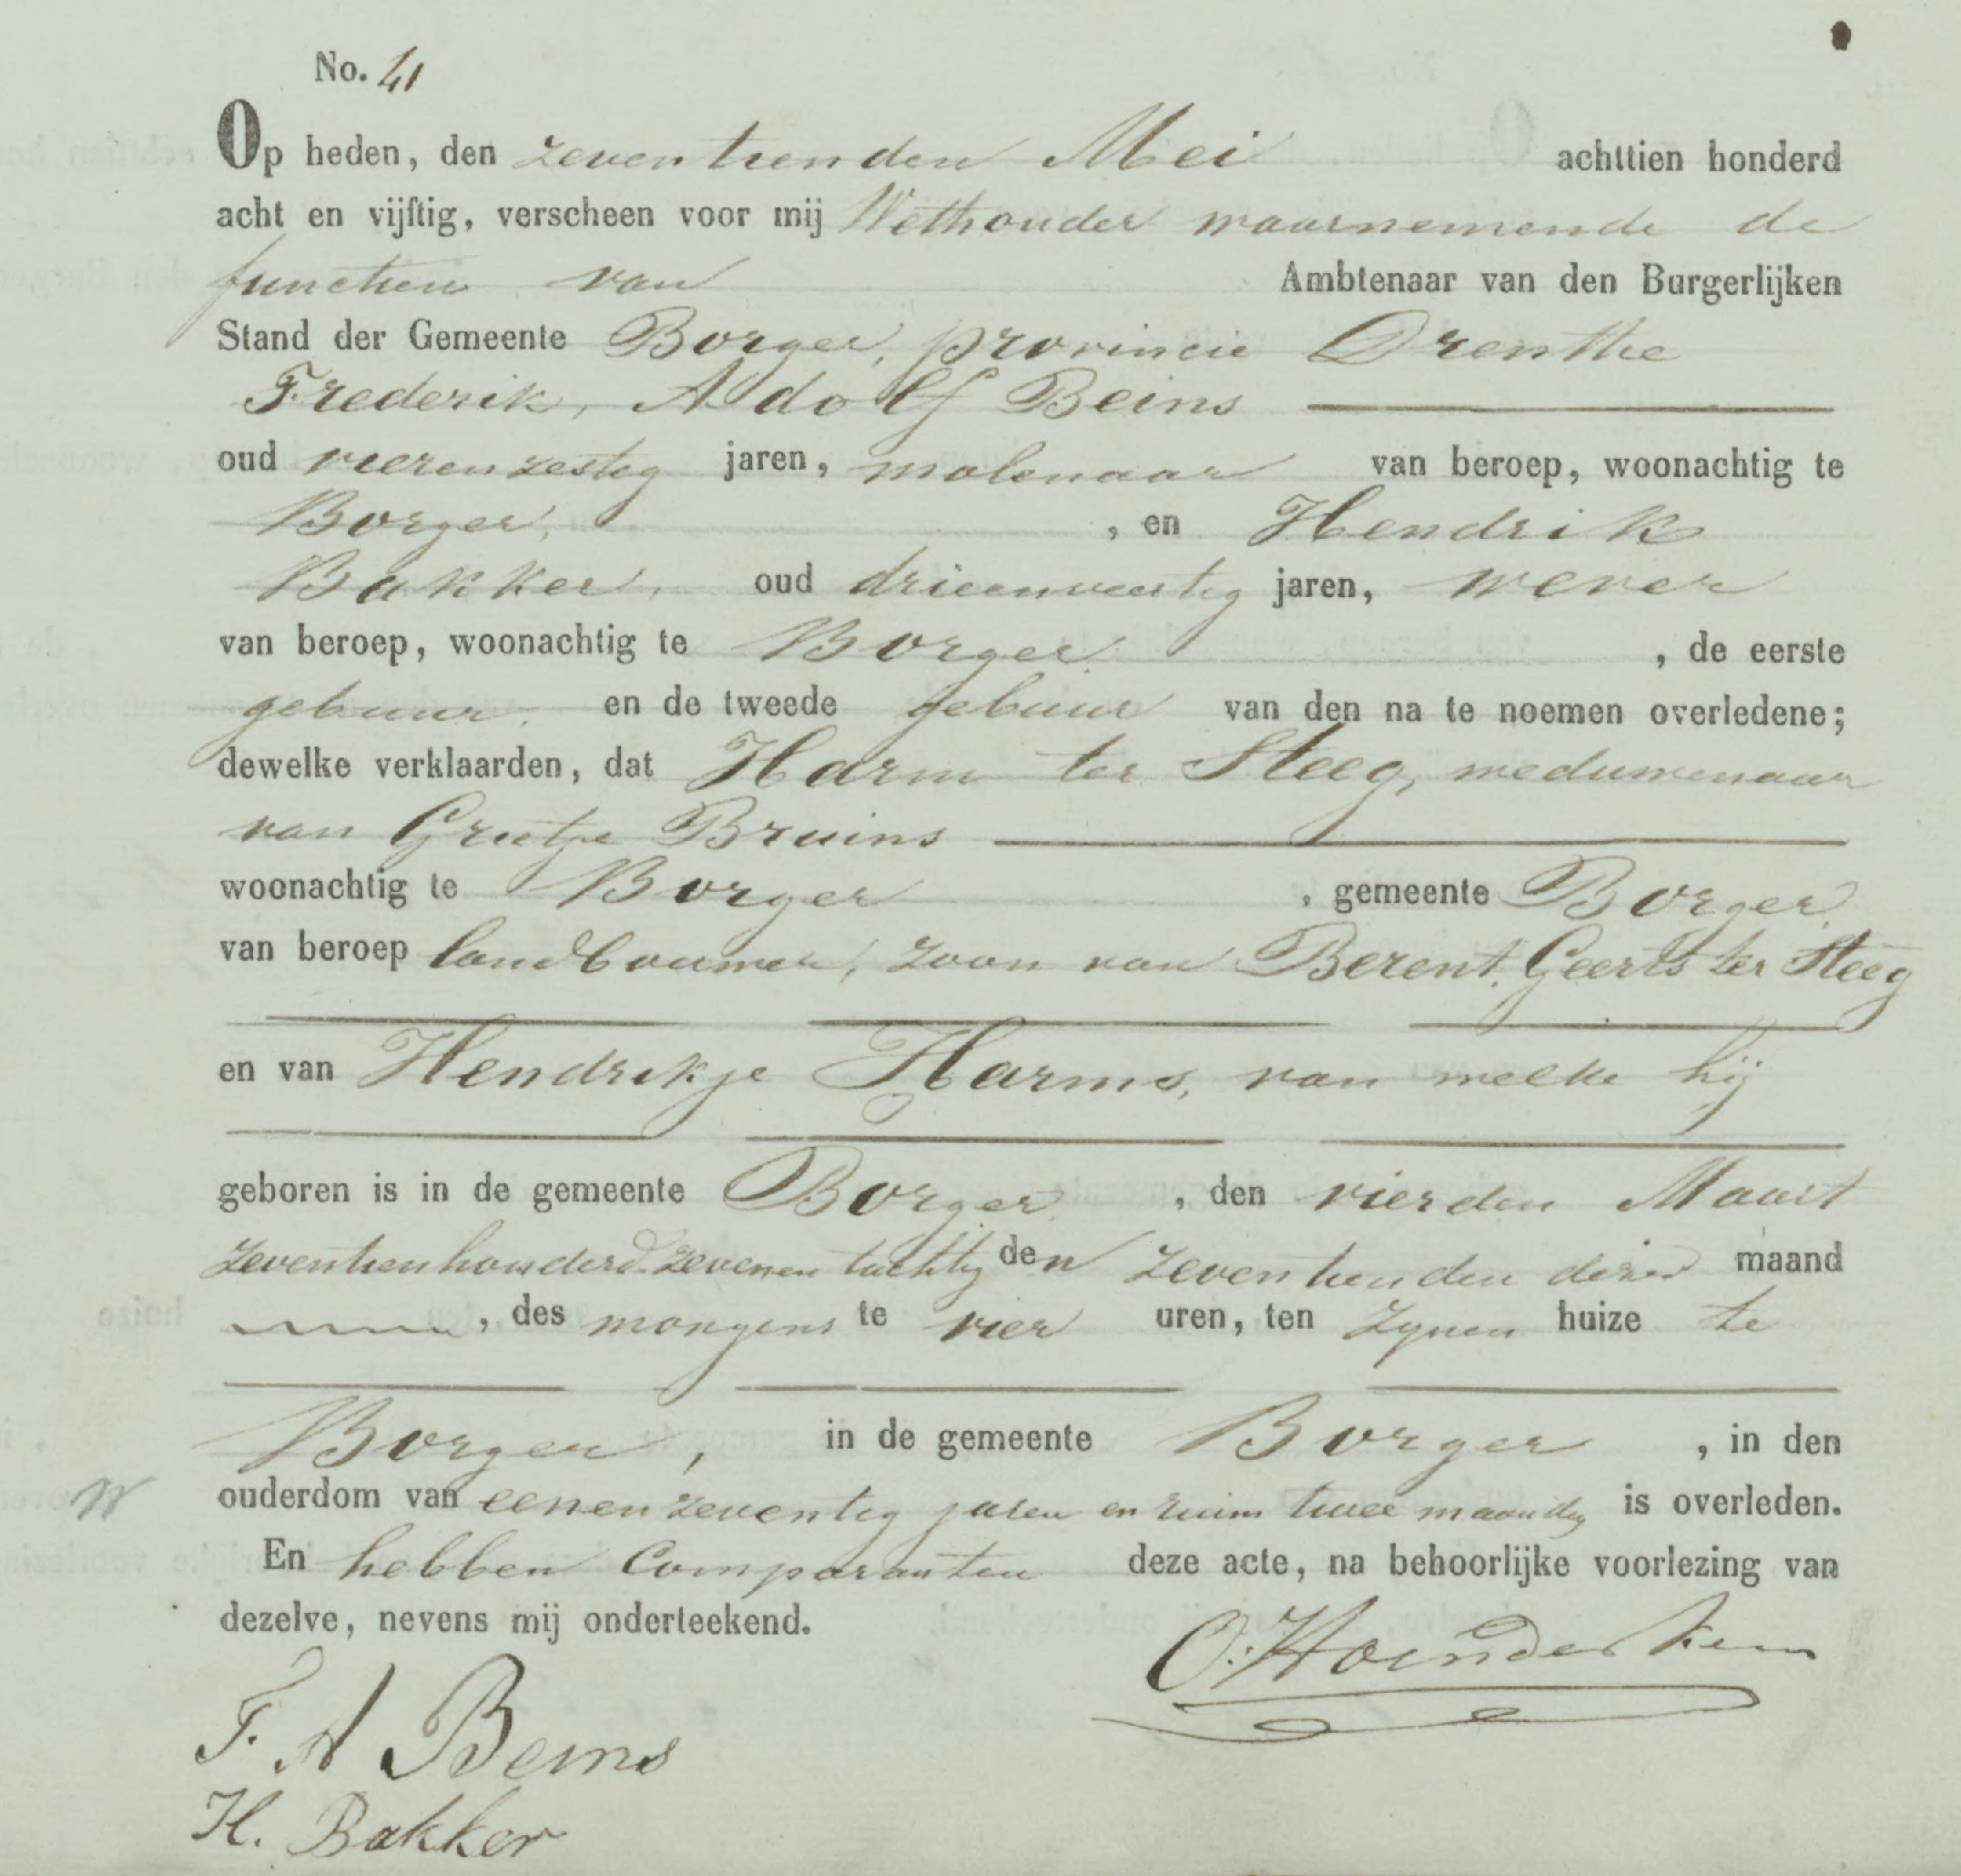 No. 41
Op heden, den zeventienden Mei achttien honderd
acht en vijftig, verscheen voor mij Wethouder waarnemende de
functien van Ambtenaar van den Burgerlijken
Stand der Gemeente Borger, provincie Drenthe
Frederik, Adolf Beins
oud vierenzestig jaren, molenaar van beroep, woonachtig te
Borger, , en Hendrik
Bakker, oud drieenveertig jaren, wever
van beroep, woonachtig te Borger , de eerste
gebuur en de tweede gebuur van den na te noemen overledene;
dewelke verklaarden, dat Harm ter Steeg, weduwenaar
van Grietje Bruins
woonachtig te Borger , gemeente Borger
van beroep landbouwer, zoon van Berent Geerts ter Steeg
en van Hendrikje Harms, van welke hij
geboren is in de gemeente Borger , den vierden Maart
zeventienhonderd zevenentachtig den zeventienden dezer maand
, des morgens te vier uren, ten zynen huize te
Borger, in de gemeente Borger , in den
ouderdom van eenenzeventig jaren en ruim twee maanden is overleden.
En hebben Comparanten deze acte, na behoorlijke voorlezing van
dezelve, nevens mij onderteekend.
F. A Beins
H. Bakker